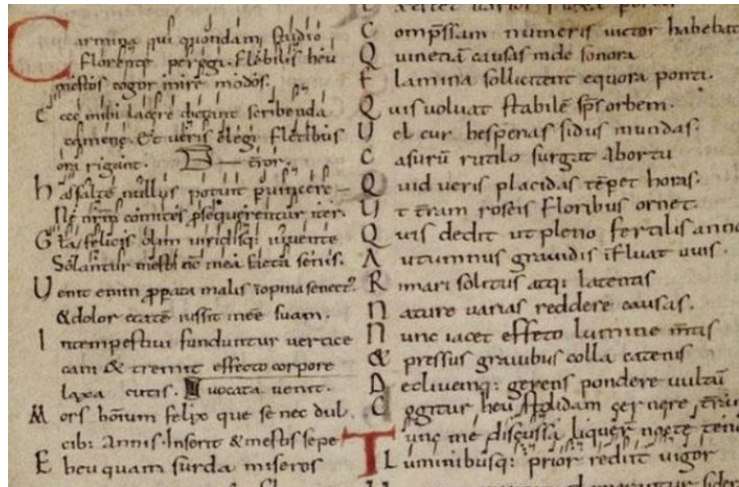 Carmina qui quondam studio
florente peregi. Flebilis heu
mestos cogor inire modos.
Ecce mihi lacere dictant scribenda
camene. Et ueris elegi fletibus
ora rigant. error.
has saltē nullus potuit puincere
Ne nrm̄ comites psequerentur iter.
Gl̄a felicis olim uiridisq: iuuente
Solantur mesti nc̄ mea fata senis.
Uenit enim ppata malis inopina senect⁹
& dolor etatē iussit inee suam.
Intempestiui funduntur uertice
cani & tremit effecto corpore
laxa cutis. uocata uenit.
Mors hominum felix que se nec dul
cib: annis. Inserit & mestis sepe
Eheu quam surda miseros
Compssam numeris uictor habebat
Quinetiā causas unde sonora
Flamina sollicitent equora ponti.
Quis uoluat stabilē sps orbem.
Uel cur hesperias sidus inundas.
Casurū rutilo surgat abortu
Quid ueris placidas tēpet horas.
Ut tr̄am roseis floribus ornet.
Quis dedit ut pleno fertilis anno
Autumnus grauidis īfluat uuis.
Rimari solitus atq: latentis
Nature uarias reddere causas.
Nunc iacet effeto lumine m̄tis
& pressus grauibus colla catenis
Decliuemq: gerens pondere uultū
Cogitur heu stolidam cernere tr̄am
Tunc me discussa liquer nocte tene
Luminibusq: prior rediit uigor